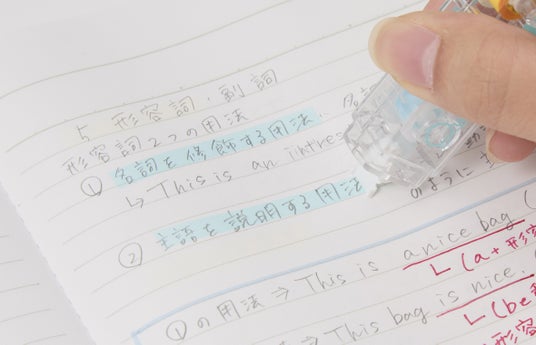 5 形容詞・副詞
形容詞2つの用法
① 名詞を修飾する用法… 名
↳ This is an intres
② 主語を説明する用法 のように
①の用法 ⇒ This is a nice bag (
↳ (a + 形容
⇒ This bag is nice.
↳ (be
形容